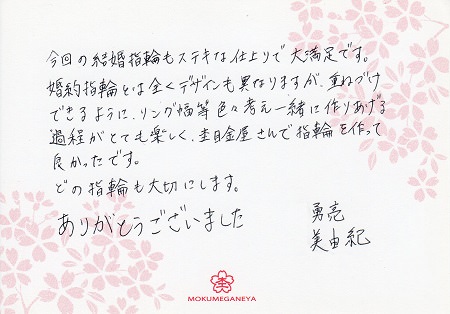 今回の結婚指輪もステキな仕上りで大満足です。
婚約指輪とは全くデザインも異なりますが、重ねづけ
できるように、リング幅等色々考え一緒に作りあげる
過程がとても楽しく、杢目金屋さんで指輪を作って
良かったです。
どの指輪も大切にします。
ありがとうございました
勇亮
美由紀
杢
MOKUMEGANEYA